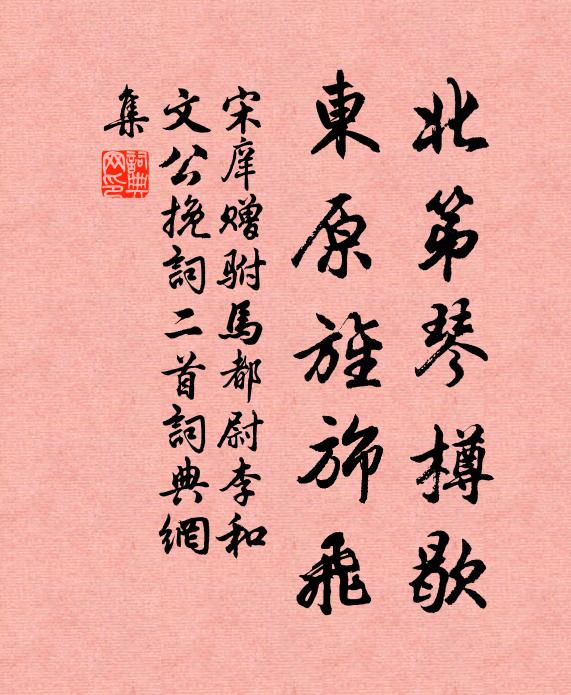 北第琴樽歇
東原旌旆飛
宋庠赠駙馬都尉李和
文公挽詞二首詞典網
集
詞典
网印